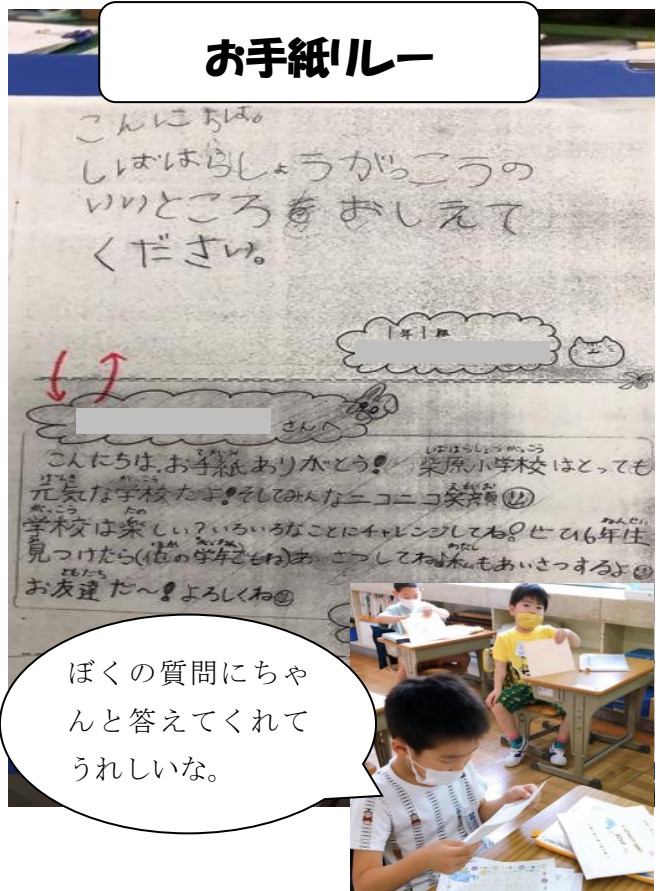 お手紙リレー
こんにちは。
しばはらしょうがっこうの
いいところをおしえて
ください。
1年1組
さんへ
こんにちは。お手紙ありがとう! 柴原小学校はとっても
元気な学校だよ!そしてみんなニコニコ笑顔
学校は楽しい?いろいろなことにチャレンジしてね!ぜひ6年生
見つけたら(他の学年でもね)あいさつしてね♪私もあいさつするよ
お友達だ〜!よろしくね
ぼくの質問にちゃ
んと答えてくれて
うれしいな。